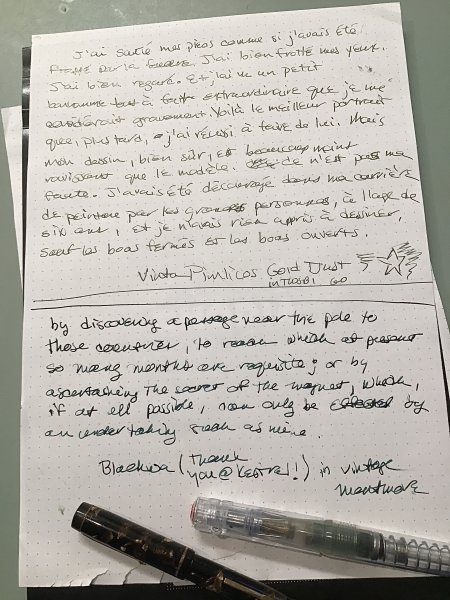 J'ai sauté mes pieds comme si j'avais été
par la foudre. J'ai bien frotté mes yeux.
J'ai bien regardé. Et j'ai vu un petit
bonhomme tout à fait extraordinaire que je me
considérait gravement. Voilà le meilleur portrait
que, plus tard, j'ai réussi à faire de lui. Mais
mon dessin, bien sûr, est beaucoup moins
ravissant que le modèle. Ce n'est pas ma
faute. J'avais été découragé dans ma carrière
de peinture par les grandes personnes, à l'age de
six ans, et je n'avais rien appris à dessiner,
sauf les boas fermés et les boas ouverts.
Vinta Pimlicos Gold Dust
in TWSBI GO
by discovering a passage near the pole to
those countries, to reach which at present
so many months are requisite; or by
ascertaining the secret of the magnet, which,
if at all possible, can only be effected by
an undertaking such as mine.
(Thank
you @Kestrel!) in vintage